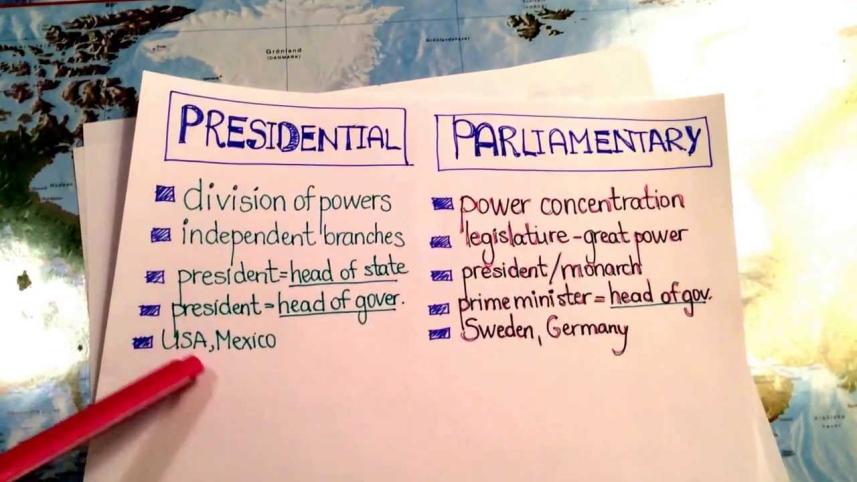 Grönland
(DANMARK)
PRESIDENTIAL
division of powers
independent branches
president=head of state
president=head of gover.
USA, Mexico
PARLIAMENTARY
power concentration
legislature-great power
president/monarch
prime minister=head of gov.
Sweden, Germany